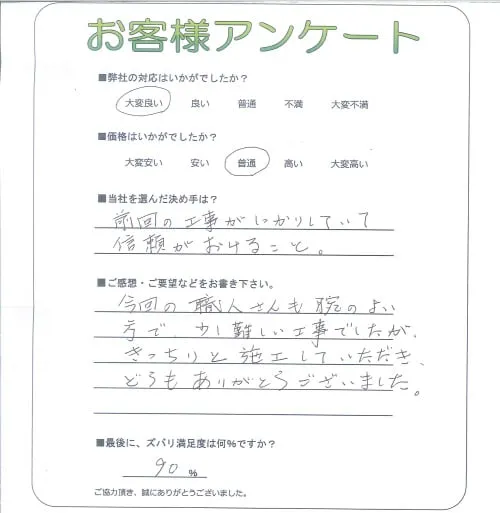 お客様アンケート
■弊社の対応はいかがでしたか?
大変良い 良い 普通 不満 大変不満
■価格はいかがでしたか?
大変安い 安い 普通 高い 大変高い
■当社を選んだ決め手は?
前回の工事がしっかりしていて
信頼がおけること。
■ご感想・ご要望などをお書き下さい。
今回の職人さんも腕のよい
方で、少し難しい工事でしたが、
きっちりと施工していただき、
どうもありがとうございました。
■最後に、ズバリ満足度は何%ですか?
90 %
ご協力頂き、誠にありがとうございました。